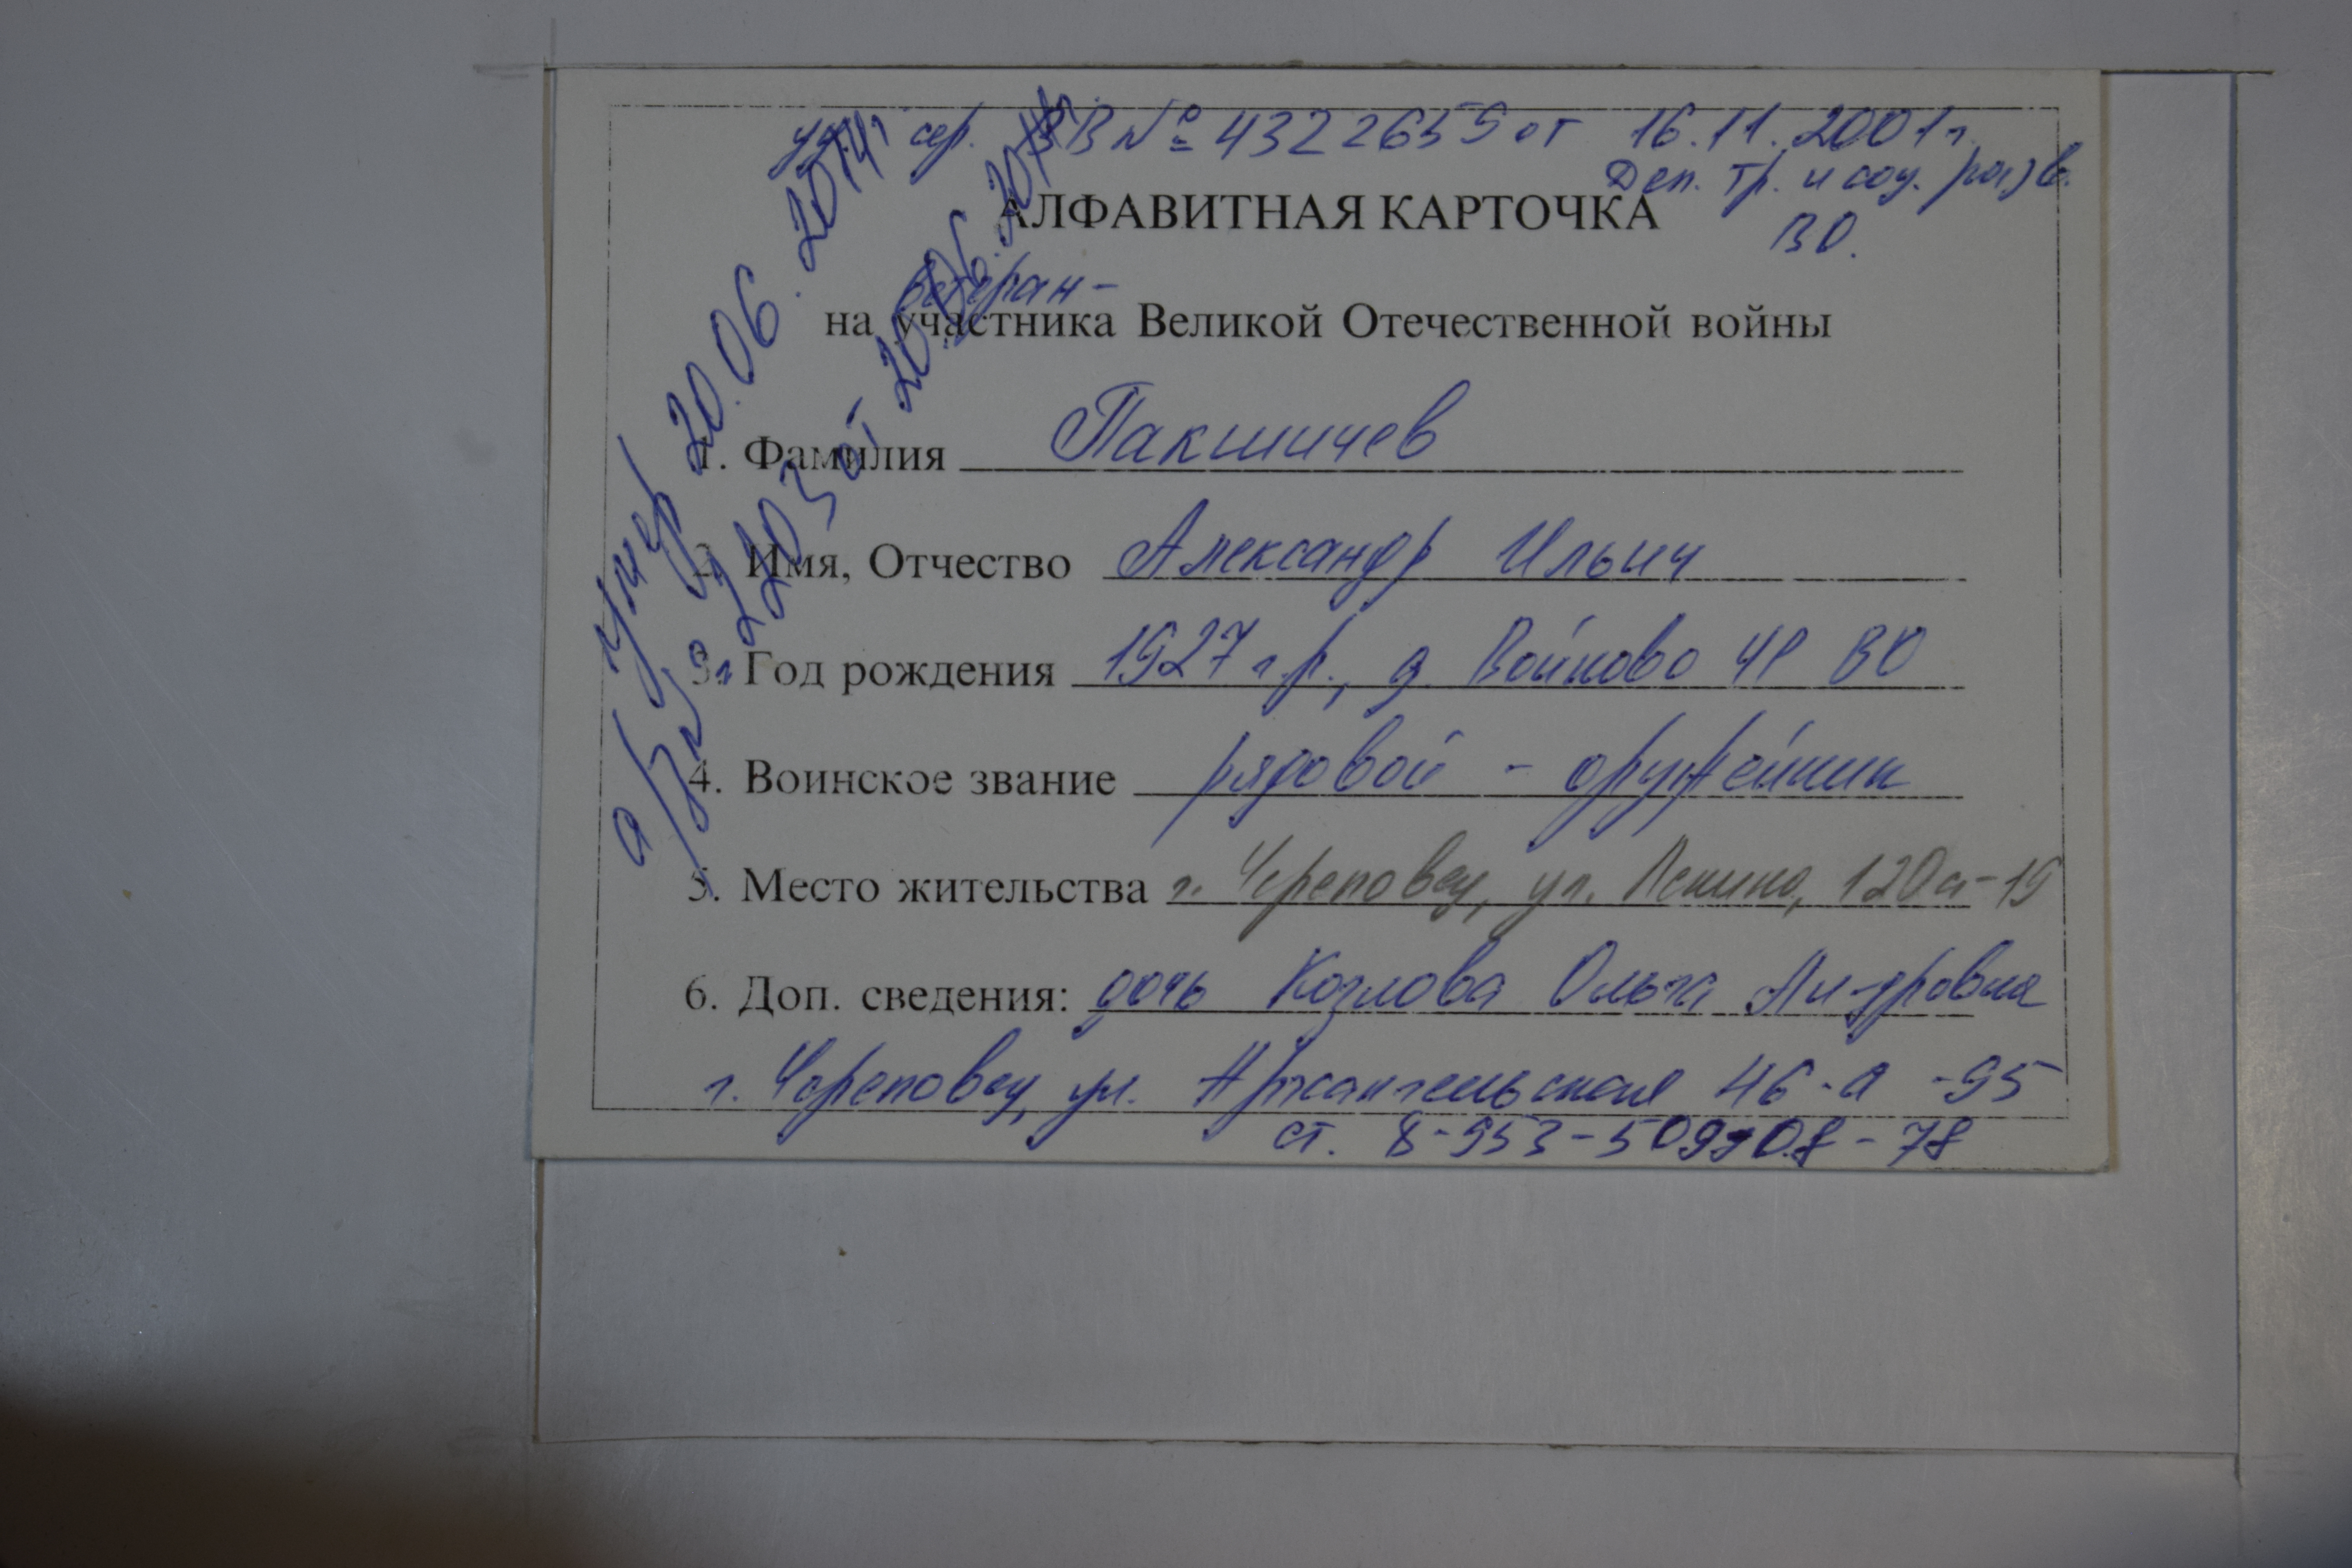 уд. сер. ВВ № 4322659 от 16.11.2001 г.
Деп. тр. и соц. разв.
ВО.
АЛФАВИТНАЯ КАРТОЧКА
ветеран-
на участника Великой Отечественной войны
1. Фамилия Пакшичев
2. Имя, Отчество Александр Ильич
3. Год рождения 1927 г.р., д. Войново ЧР ВО
4. Воинское звание рядовой - оружейник
5. Место жительства г. Череповец, ул. Ленина, 120а-19
6. Доп. сведения: дочь Козлова Ольга Ал-дровна
г. Череповец, ул. Архангельская 46-а -95
ст. 8-953-509-08-78
Умер 20.06.2014г.
от 20.06.2014г.